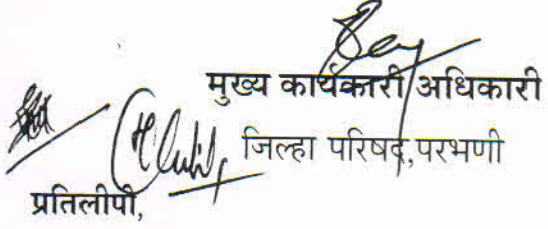 मुख्य कार्यकारी अधिकारी
जिल्हा परिषद,परभणी
प्रतिलीपी,